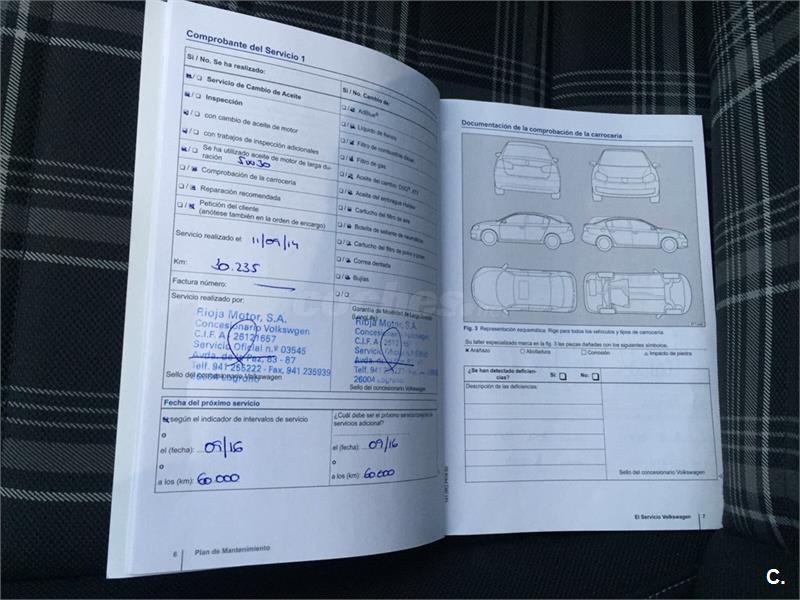 Comprobante del Servicio 1
Si / No. Se ha realizado:
Servicio de Cambio de Aceite
Inspección
con cambio de aceite de motor
con trabajos de inspección adicionales
Se ha utilizado aceite de motor de larga du-
ración 50030
Comprobación de la carrocería
Reparación recomendada
Petición del cliente
(anótese también en la orden de encargo)
Servicio realizado el: 11/09/14
Km: 30.235
Factura número:
Servicio realizado por:
Rioja Motor, S.A.
Concesionario Volkswgen
C.I.F. A 26121657
Servicio Oficial n.º 03545
Avda. de la Paz, 83 - 87
Telf. 941 255222 - Fax, 941 235939
Sello del concesionario Volkswagen
Si / No. Cambio de:
AdBlue®
Líquido de frenos
Filtro de combustible diésel
Filtro de gas
Aceite del cambio DSG®, ATF
Aceite del embrague Haldex
Cartucho del filtro de aire
Botella de sellante de neumáticos
Cartucho del filtro de polvo y polen
Correa dentada
Bujías
Garantía de Movilidad de Larga Duración
(LongLife)
Rioja Motor, S.A.
Concesionario Volkswagen
C.I.F. A
Servicio Oficial
Avda. de la Paz
Telf. 941
26004 Logroño
Sello del concesionario Volkswagen
Fecha del próximo servicio
según el indicador de intervalos de servicio
o
el (fecha): 09/16
o
a los (km): 60.000
¿Cuál debe ser el próximo servicio
servicios adicional?
el (fecha): 09/16
o
a los (km): 60.000
6 Plan de Mantenimiento
Documentación de la comprobación de la carrocería
Fig. 3 Representación esquemática: Rige para todos los vehículos y tipos de carrocería.
Su taller especializado marca en la fig. 3 las piezas dañadas con los siguientes símbolos.
x Arañazo ○ Abolladura □ Corrosión △ Impacto de piedra
¿Se han detectado deficien-
cias? Sí: ❑ No: ❑
Descripción de las deficiencias:
Sello del concesionario Volkswagen
El Servicio Volkswagen 7
coches
C.